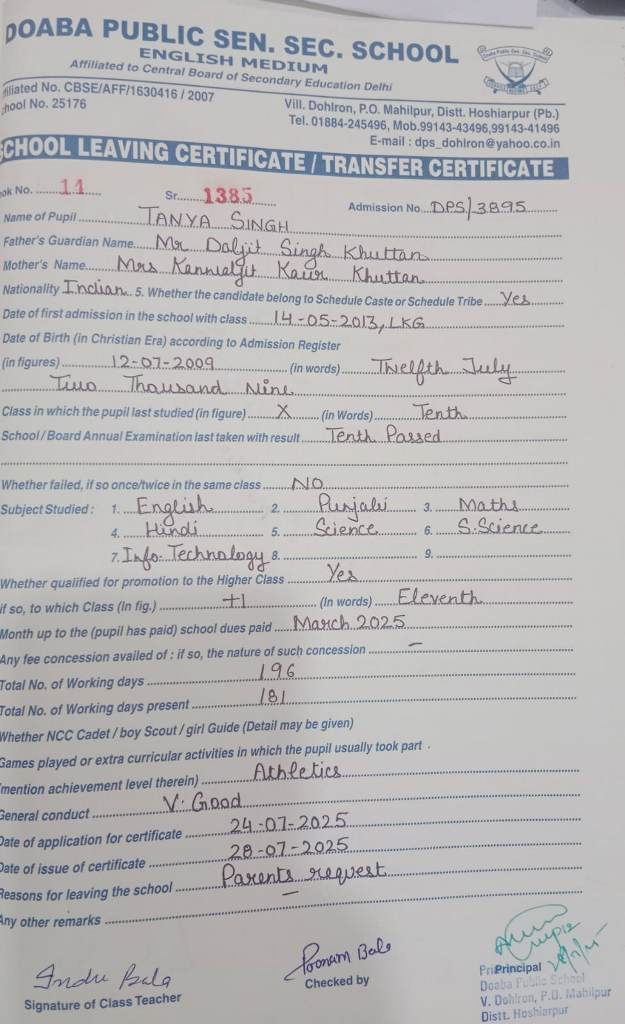 DOABA PUBLIC SEN. SEC. SCHOOL
ENGLISH MEDIUM
Affiliated to Central Board of Secondary Education Delhi
filiated No. CBSE/AFF/1630416 / 2007
chool No. 25176
Vill. Dohlron, P.O. Mahilpur, Distt. Hoshiarpur (Pb.)
Tel. 01884-245496, Mob.99143-43496,99143-41496
E-mail : dps_dohlron@yahoo.co.in
SCHOOL LEAVING CERTIFICATE / TRANSFER CERTIFICATE
ok No. 11 Sr. 1385 Admission No. DPS/3895
Name of Pupil TANYA SINGH
Father's Guardian Name Mr Daljit Singh Khuttan
Mother's Name Mrs Kaur Khuttan
Nationality Indian 5. Whether the candidate belong to Schedule Caste or Schedule Tribe Yes
Date of first admission in the school with class 14-05-2013, LKG
Date of Birth (in Christian Era) according to Admission Register
(in figures) 12-07-2009 (in words) Twelfth July
Two Thousand Nine
Class in which the pupil last studied (in figure) X (in Words) Tenth
School / Board Annual Examination last taken with result Tenth Passed
Whether failed, if so once/twice in the same class NO
Subject Studied : 1. English 2. Punjabi 3. Maths
4. Hindi 5. Science 6. S.Science
7. Info. Technology 8. 9.
Whether qualified for promotion to the Higher Class Yes
if so, to which Class (In fig.) +1 (In words) Eleventh
Month up to the (pupil has paid) school dues paid March 2025
Any fee concession availed of : if so, the nature of such concession –
Total No. of Working days 196
Total No. of Working days present 181
Whether NCC Cadet / boy Scout / girl Guide (Detail may be given)
Games played or extra curricular activities in which the pupil usually took part .
(mention achievement level therein) Athletics
General conduct V. Good
Date of application for certificate 24-07-2025
Date of issue of certificate 28-07-2025
Reasons for leaving the school Parents request
Any other remarks –
Indu Bala
Signature of Class Teacher
Poonam Bala
Checked by
Principal
Doaba Public School
V. Dohlron, P.O. Mahilpur
Distt. Hoshiarpur